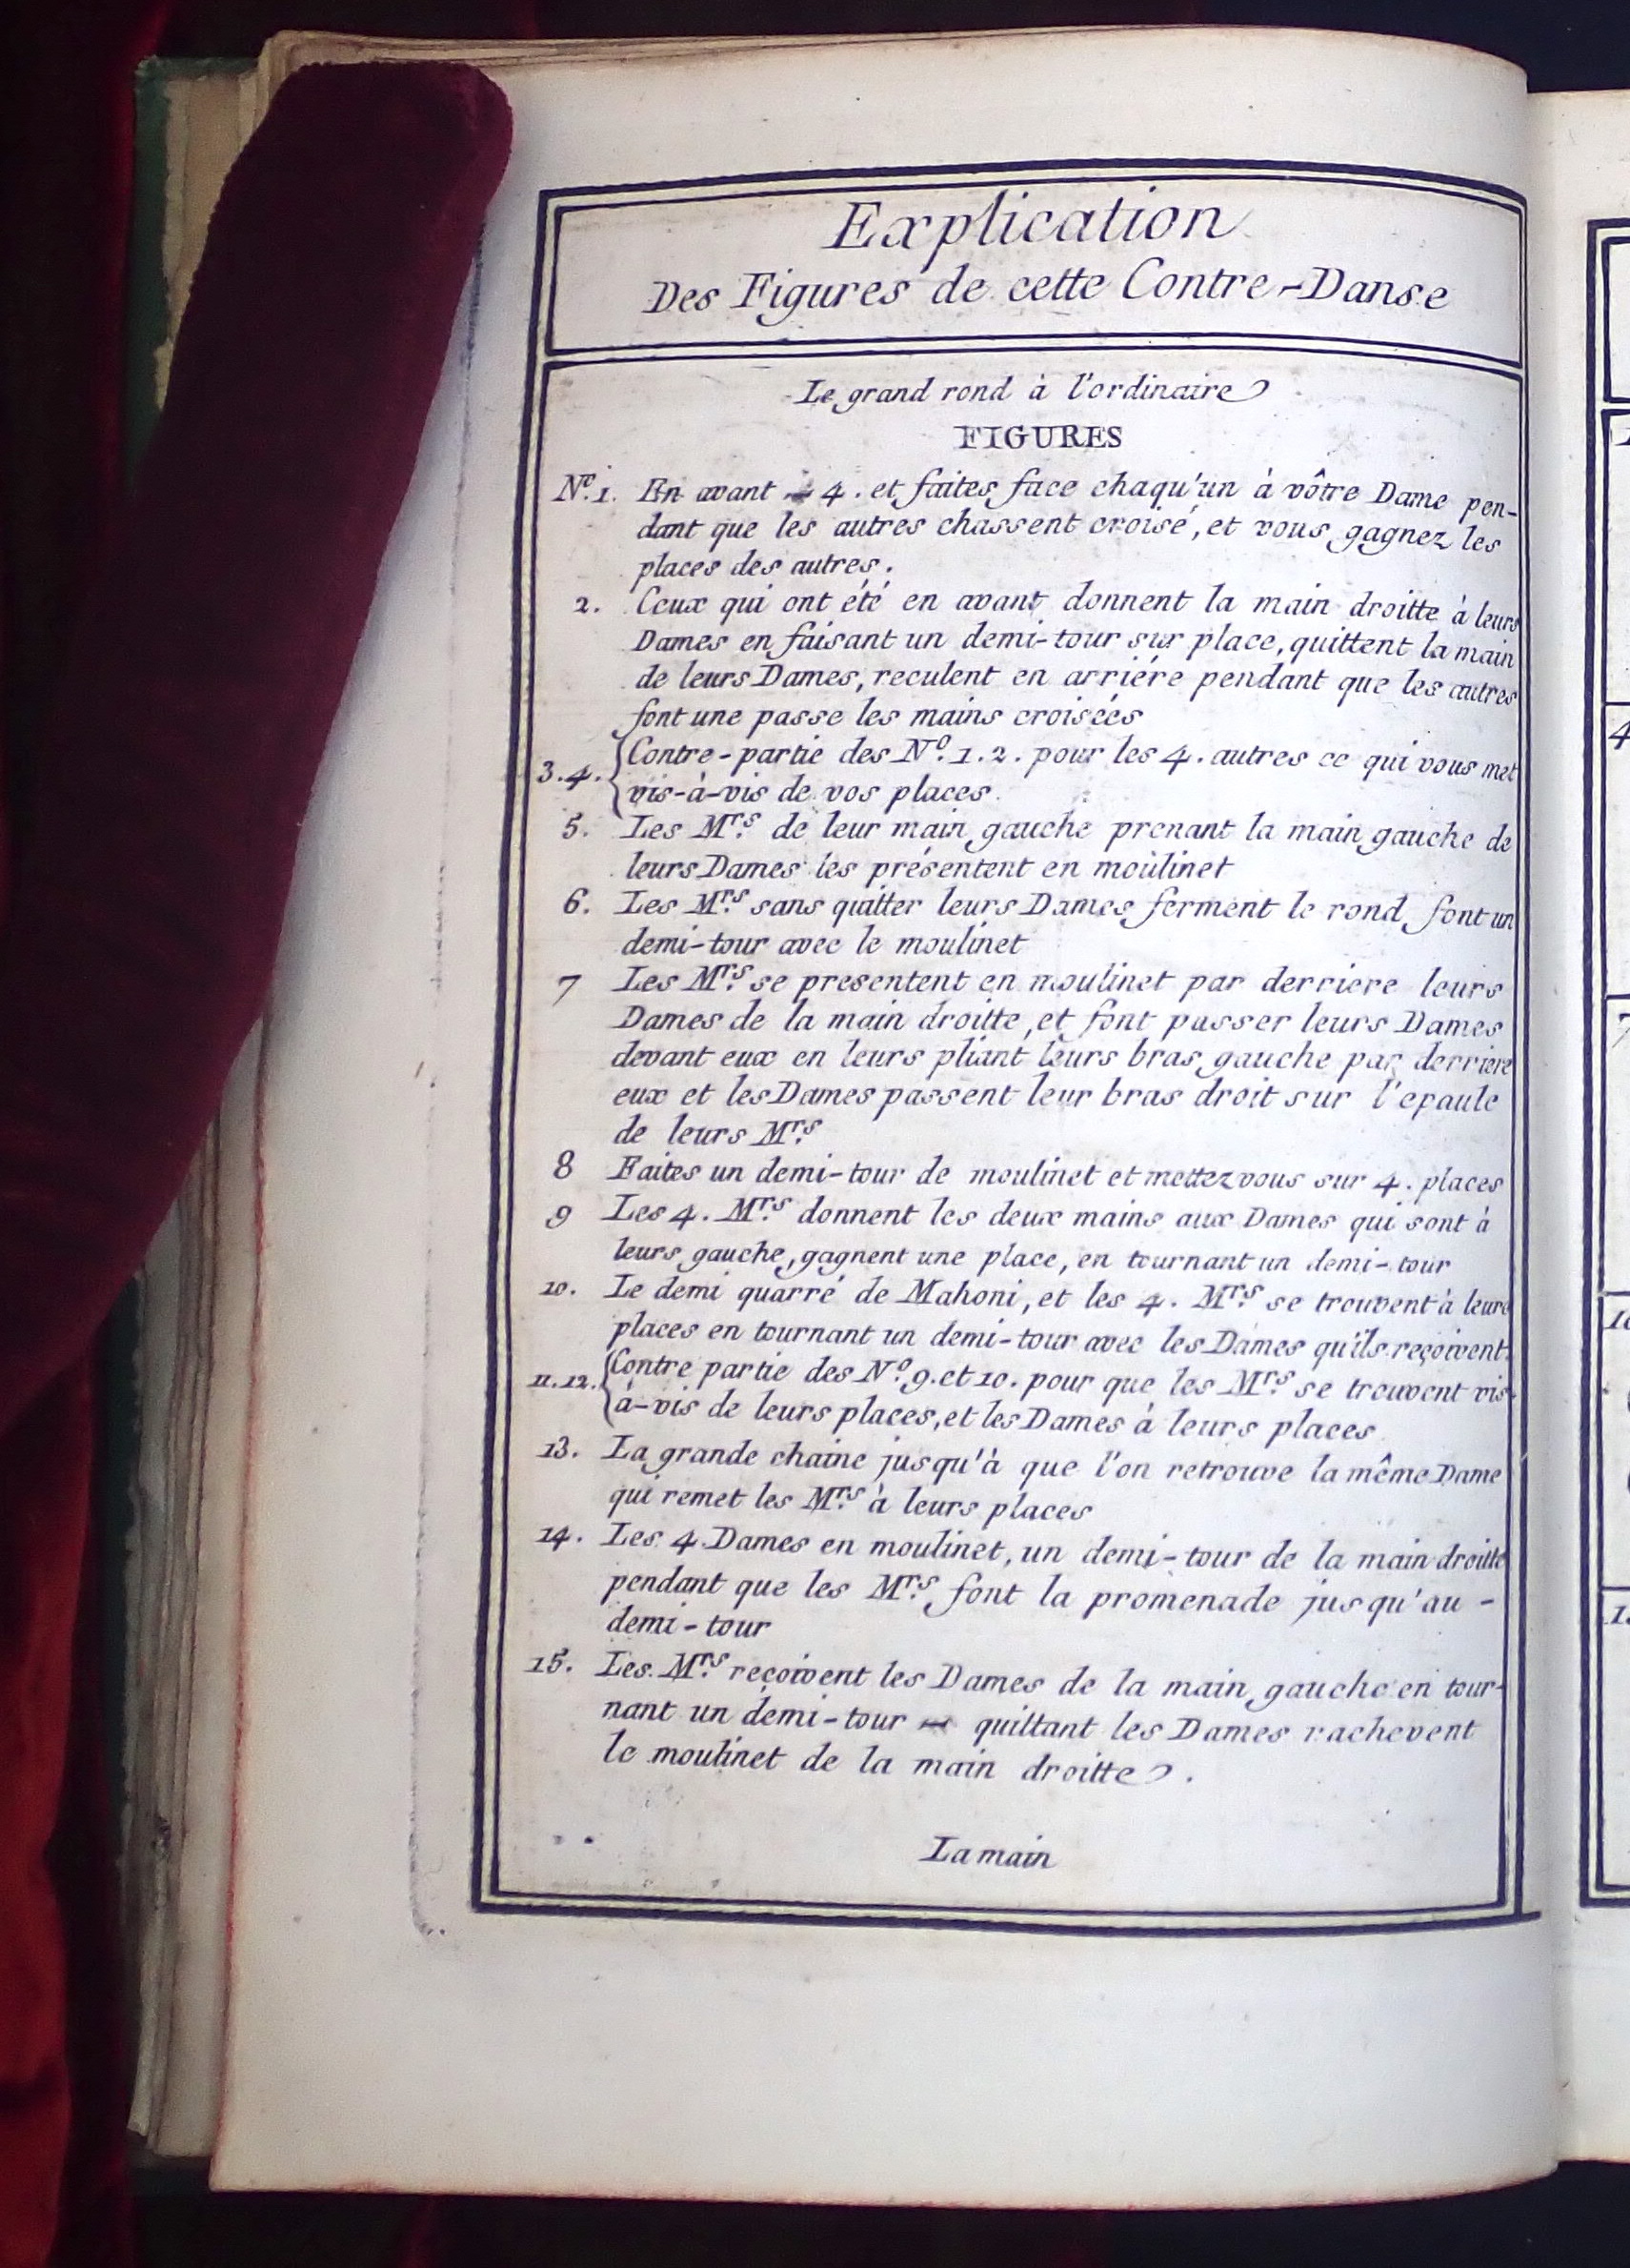 Explication
Des Figures de cette Contre-Danse
Le grand rond à l'ordinaire
FIGURES
N.º 1. En avant 4. et faites face chaqu'un à vôtre Dame pen-
dant que les autres chassent croisé, et vous gagnez les
places des autres.
2. Ceux qui ont été en avant donnent la main droitte à leurs
Dames en faisant un demi-tour sur place, quittent la main
de leurs Dames, reculent en arriére pendant que les autres
font une passe les mains croisées
3.4. Contre-partie des N.º 1.2. pour les 4. autres ce qui vous met
vis-à-vis de vos places.
5. Les M.rs de leur main gauche prenant la main gauche de
leurs Dames les présentent en moulinet
6. Les M.rs sans quitter leurs Dames ferment le rond font un
demi-tour avec le moulinet
7 Les M.rs se presentent en moulinet par derriere leurs
Dames de la main droitte, et font passer leurs Dames
devant eux en leurs pliant leurs bras gauche par derriere
eux et les Dames passent leur bras droit sur l'epaule
de leurs M.rs
8 Faites un demi-tour de moulinet et mettez vous sur 4. places
9 Les 4. M.rs donnent les deux mains aux Dames qui sont à
leurs gauche, gagnent une place, en tournant un demi-tour
10. Le demi quarré de Mahoni, et les 4. M.rs se trouvent à leurs
places en tournant un demi-tour avec les Dames qu'ils reçoivent.
11.12. Contre partie des N.º 9. et 10. pour que les M.rs se trouvent vis-
à-vis de leurs places, et les Dames à leurs places.
13. La grande chaine jusqu'à que l'on retrouve la même Dame
qui remet les M.rs à leurs places
14. Les 4 Dames en moulinet, un demi-tour de la main droitte
pendant que les M.rs font la promenade jusqu'au -
demi-tour
15. Les M.rs reçoivent les Dames de la main gauche en tour-
nant un demi-tour quittant les Dames rachevent
le moulinet de la main droitte.
La main
4
7